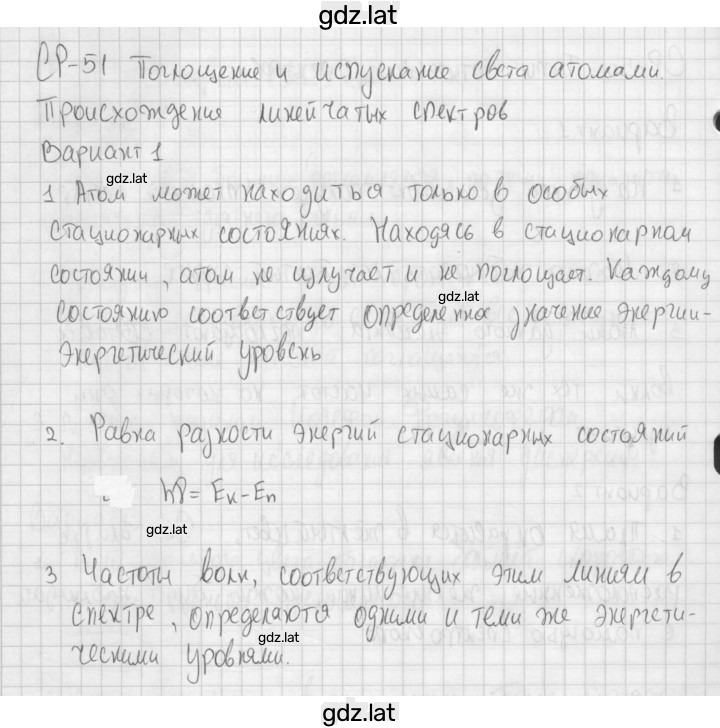 gdz.lat
СР-51 Поглощение и испускание света атомами.
Происхождение линейчатых спектров
Вариант 1
gdz.lat
1 Атом может находиться только в особых
стационарных состояниях. Находясь в стационарном
состоянии, атом не излучает и не поглощает. Каждому
gdz.lat
состоянию соответствует определенное значение энергии-
энергетический уровень
2. Равна разности энергий стационарных состояний
hν = Eк - En
gdz.lat
3 Частоты волн, соответствующих этим линиям в
спектре, определяются одними и теми же энергети-
gdz.lat
ческими уровнями.
gdz.lat